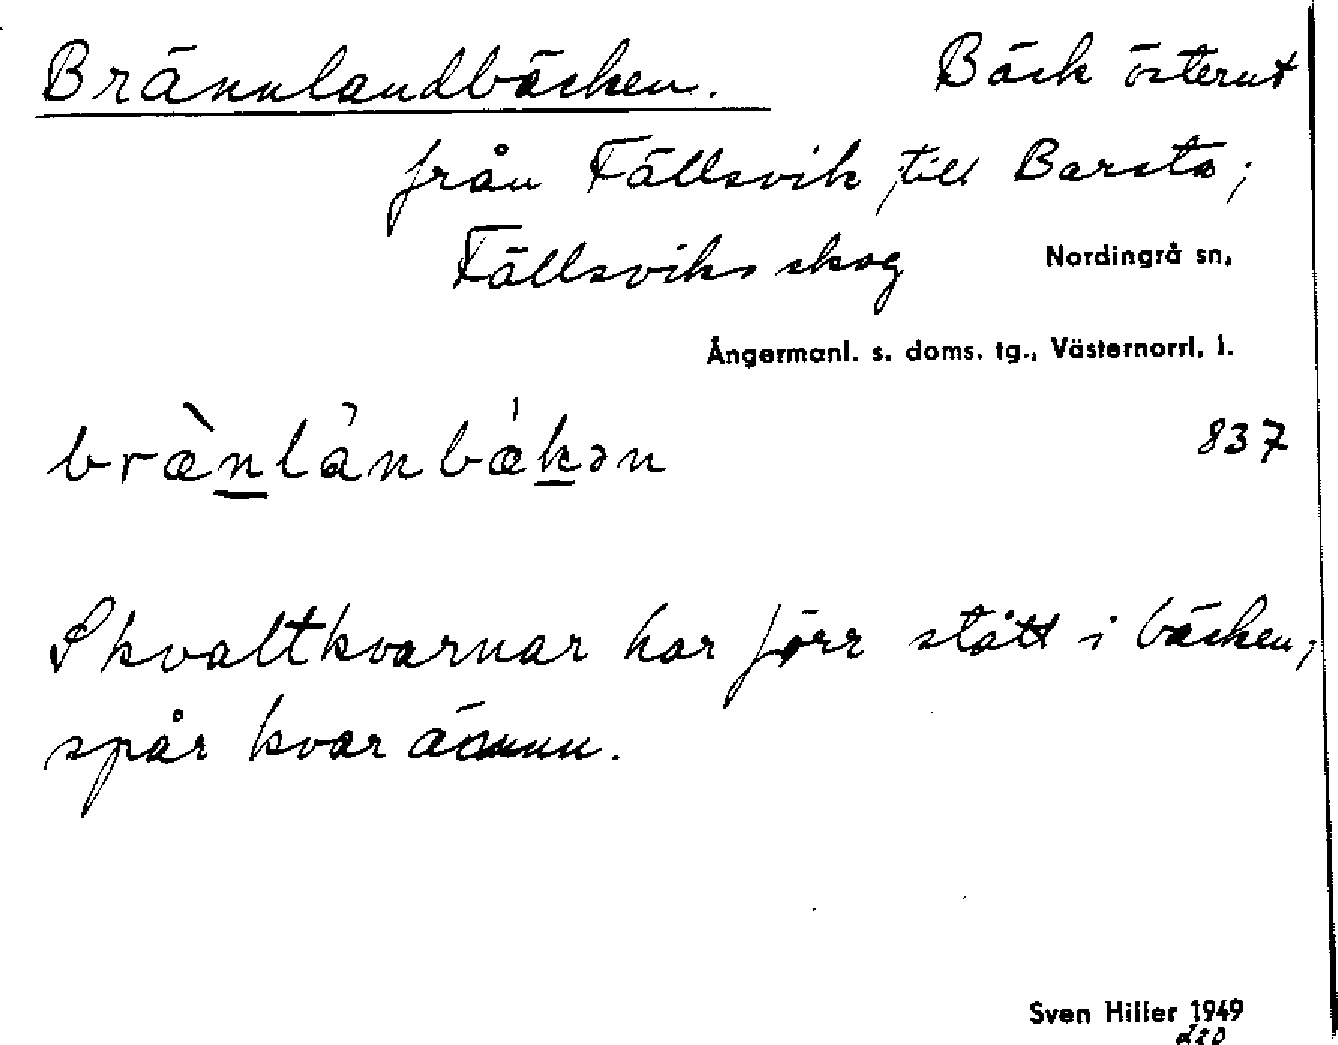 Brännlandbäcken. Bäck österut
från Fällsvik, till Barsta;
Fällsviks skog Nordingrå sn,
Ångermanl. s. doms. tg., Västernorrl. l.
bræ̀n̲lànbæ̍k̲ən 837
Skvaltkvarnar har förr stått i bäcken;
spår kvar ännu.
Sven Hiller 1949